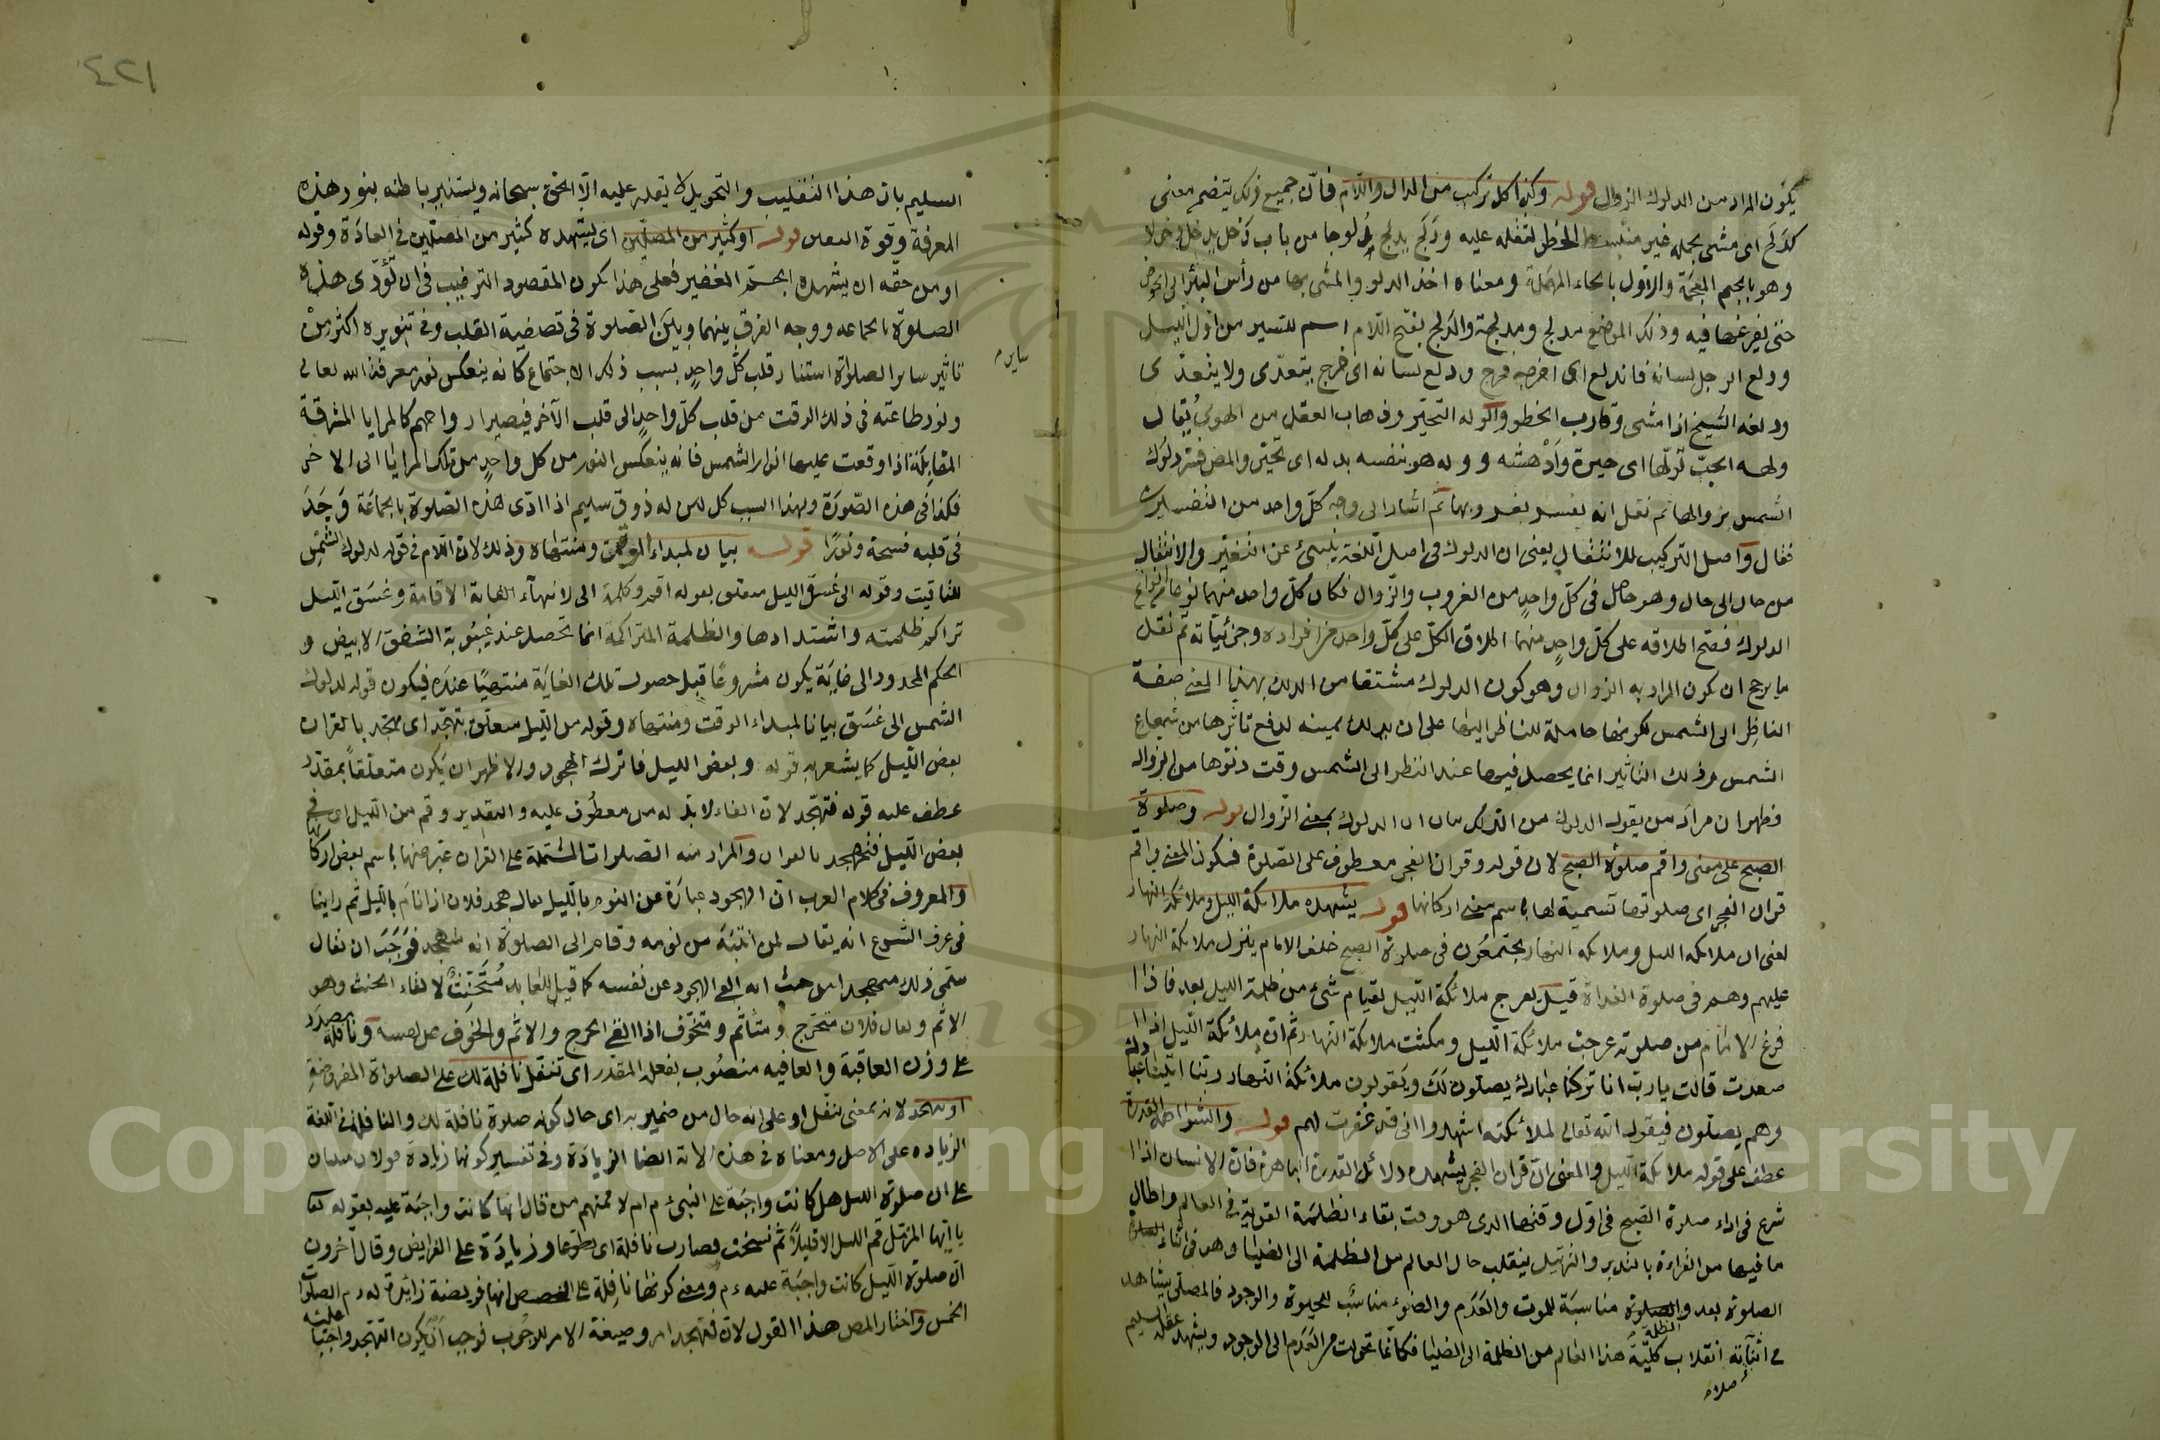 يكون المراد من الدلوك الزوال قوله وكذا كل تركيب من الدال واللام فان جميع ذلك يتضمن معنى
كدلح اى مشى بحمله غير منبسط الخطو لثقله عليه ودلج يدلج دلوجا من باب دخل يدخل
وهو بالجيم المعجمة والاول بالحاء المهملة ومعناه اخذ الدلو والمشى بها من رأس البئر الى الحوض
حتى يفرغها فيه وذلك الموضع مدلج ومدلجة والدلج بفتح اللام اسم للسير من اول الليل
ودلع الرجل لسانه فاندلع اى اخرجه فخرج ودلع لسانه اى خرج يتعدى ولا يتعدى
ودلف الشيخ اذا مشى وقارب الخطو والوله التحير وذهاب العقل من الهوى يقال
ولهه الحب تولها اى حيرة وأدهشه ووله هو بنفسه بدله اى تحير والمص فسر دلوك
الشمس بزوالها ثم نقل انه يفسر بغروبها ثم اشار الى وجه كل واحد من التفسيرين
فقال واصل التركيب للانتقال يعنى ان الدلوك فى اصل اللغة ينبئ عن التغير والانتقال
من حال الى حال وهو حاصل فى كل واحد من الغروب والزوال فكان كل واحد منهما نوعا من انواع
الدلوك فصح اطلاقه على كل واحد منهما اطلاق الكل على كل واحد من افراده وجزئياته ثم نقل
ما يرجح ان يكون المراد به الزوال وهو كون الدلوك مشتقا من الدلك بهذا المعنى صفة
الناظر الى الشمس لكونها حاملة للناظر اليها على ان يدلك عينيه لدفع تاثرها من شعاع
الشمس وذلك التاثير انما يحصل فيها عند النظر الى الشمس وقت دنوها من الزوال
فظهر ان مراد من يقول الدلوك من الدلك بيان ان الدلوك بمعنى الزوال قوله وصلوة
الصبح على معنى واقم صلوة الصبح لان قوله وقران الفجر معطوف على الصلوة فيكون المعنى واقم
قران الفجر اى صلوتها تسمية لها باسم بعض اركانها قوله يشهده ملائكة الليل وملائكة النهار
يعنى ان ملائكة الليل وملائكة النهار يجتمعون فى صلوة الصبح خلف الامام ينزل ملائكة النهار
عليهم وهم فى صلوة الغداة قبل يعرج ملائكة الليل لقيام شىء من ظلمة الليل بعد فاذا
فرغ الامام من صلوته عرجت ملائكة الليل ومكثت ملائكة النهار ثم ان ملائكة الليل اذا
صعدت قالت يارب انا تركنا عبادك يصلون لك ويقولون ملائكة النهار ربنا اتينا عبادك
وهم يصلون فيقول الله تعالى لملائكته اشهدوا انى قد غفرت لهم قوله والشواهد القدرة
عطف على قوله ملائكة الليل والمعنى ان قران الفجر يشهده دلائل القدرة الباهرة فان الانسان اذا
شرع فى اداء صلوة الصبح فى اول وقتها الذى هو وقت بقاء الظلمة القوية فى العالم واطال
ما فيها من القراءة بالتدبر والترتيل ينقلب حال العالم من الظلمة الى الضياء وهو فى اثناء الصلوة
الصلوة بعد والظلمة مناسبة للموت والعدم والضوء مناسب للحيوة والوجود فالمصلى يشاهد
فى اثناء صلاته انقلاب كلية هذا العالم من الظلمة الى الضياء فكانما تحولت من العدم الى الوجود ويشهد عقله السليم
٤٢١
السليم بان هذا التقليب والتحويل لا يقدر عليه الا الحق سبحانه ويستنير باطنه بنور هذه
المعرفة وقوة اليقين قوله او كثير من المصلين اى يشهده كثير من المصلين فى العادة وقوله
او من حقه ان يشهده الجم الغفير فعلى هذا يكون المقصود الترغيب فى ان تؤدى هذه
الصلوة بالجماعة ووجه الفرق بينهما وبين الصلوة فى تصفية القلب وفى تنويره اكثر من
سايره
تاثير ساير الصلواة استنار قلب كل واحد بسبب ذلك الاجتماع كانه ينعكس نور معرفة الله تعالى
ونور طاعته فى ذلك الوقت من قلب كل واحد الى قلب الآخر فيصير ارواحهم كالمرايا المشرقة
المقابلة اذا وقعت عليها انوار الشمس فانه ينعكس النور من كل واحد من تلك المرايا الى الاخرى
فكذا فى هذه الصورة ولهذا السبب كل من له ذوق سليم اذا ادى هذه الصلوة بالجماعة وجد
فى قلبه فسحة ونورا قوله بيان لمبداء الوقت ومنتهاه وذلك لان اللام فى قوله لدلوك الشمس
للتاقيت وقوله الى غسق الليل متعلق بقوله اقم وكلمة الى لانتهاء الغاية الاقامة وغسق الليل
تراكم ظلمته واشتدادها والظلمة المتراكمة انما تحصل عند غيبوبة الشفق الابيض و
الحكم المحدود الى غاية يكون مشروعا قبل حصول تلك الغاية منتهيا عنده فيكون قوله لدلوك
الشمس الى غسق بيانا لمبداء الوقت ومنتهاه وقوله من الليل متعلق بتهجد اى تهجد بالقران
بعض الليل كما يشعر به قوله وبعض الليل فاترك الهجود والاظهر ان يكون متعلقا بمقدر
عطف عليه قوله فتهجد لان الفاء لا بد له من معطوف عليه والتقدير وقم من الليل اى فى
بعض الليل فتهجد بالقران والمراد منه الصلوات المشتملة على القران عبر عنها باسم بعض اركانها
والمعروف فى كلام العرب ان الهجود عبارة عن النوم بالليل يقال هجد فلان اذا نام بالليل ثم راينا
فى عرف الشرع انه يقال لمن انتبه من نومه وقام الى الصلوة انه متهجد فوجب ان يقال
سمى ذلك متهجدا من حيث انه القى الهجود عن نفسه كما قيل للعابد متحنث لالقاء الحنث وهو
الاثم ويقال فلان متحرج ومتأثم ومتخوف اذا القى الحرج والاثم والخوف عن نفسه ونافلة مصدر
على وزن العاقبة والعافية منصوب بفعله المقدر اى تنفل نافلة لك على الصلواة المفروضة
او بتهجد لانه بمعنى تنفل او على انه حال من ضمير به اى حال كونه صلوة نافلة لك والنافلة فى اللغة
الزيادة على الاصل ومعناه فى هذه الاية ايضا الزيادة وفى تفسير كونها زيادة قولان مبنيان
على ان صلوة الليل هل كانت واجبة على النبى ءم ام لا فمنهم من قال انها كانت واجبة عليه بقوله تعالى
يا ايها المزمل قم الليل الا قليلا ثم نسخت فصارت نافلة اى تطوعا وزيادة على الفرايض وقال آخرون
ان صلوة الليل كانت واجبة عليه ءم ومعنى كونها نافلة على التخصيص انها فريضة زائدة له ءم الصلوات
الخمس واختار المص هذا القول لان فتهجد امر وصيغة الامر للوجوب فوجب ان يكون التهجد واجبا عليه